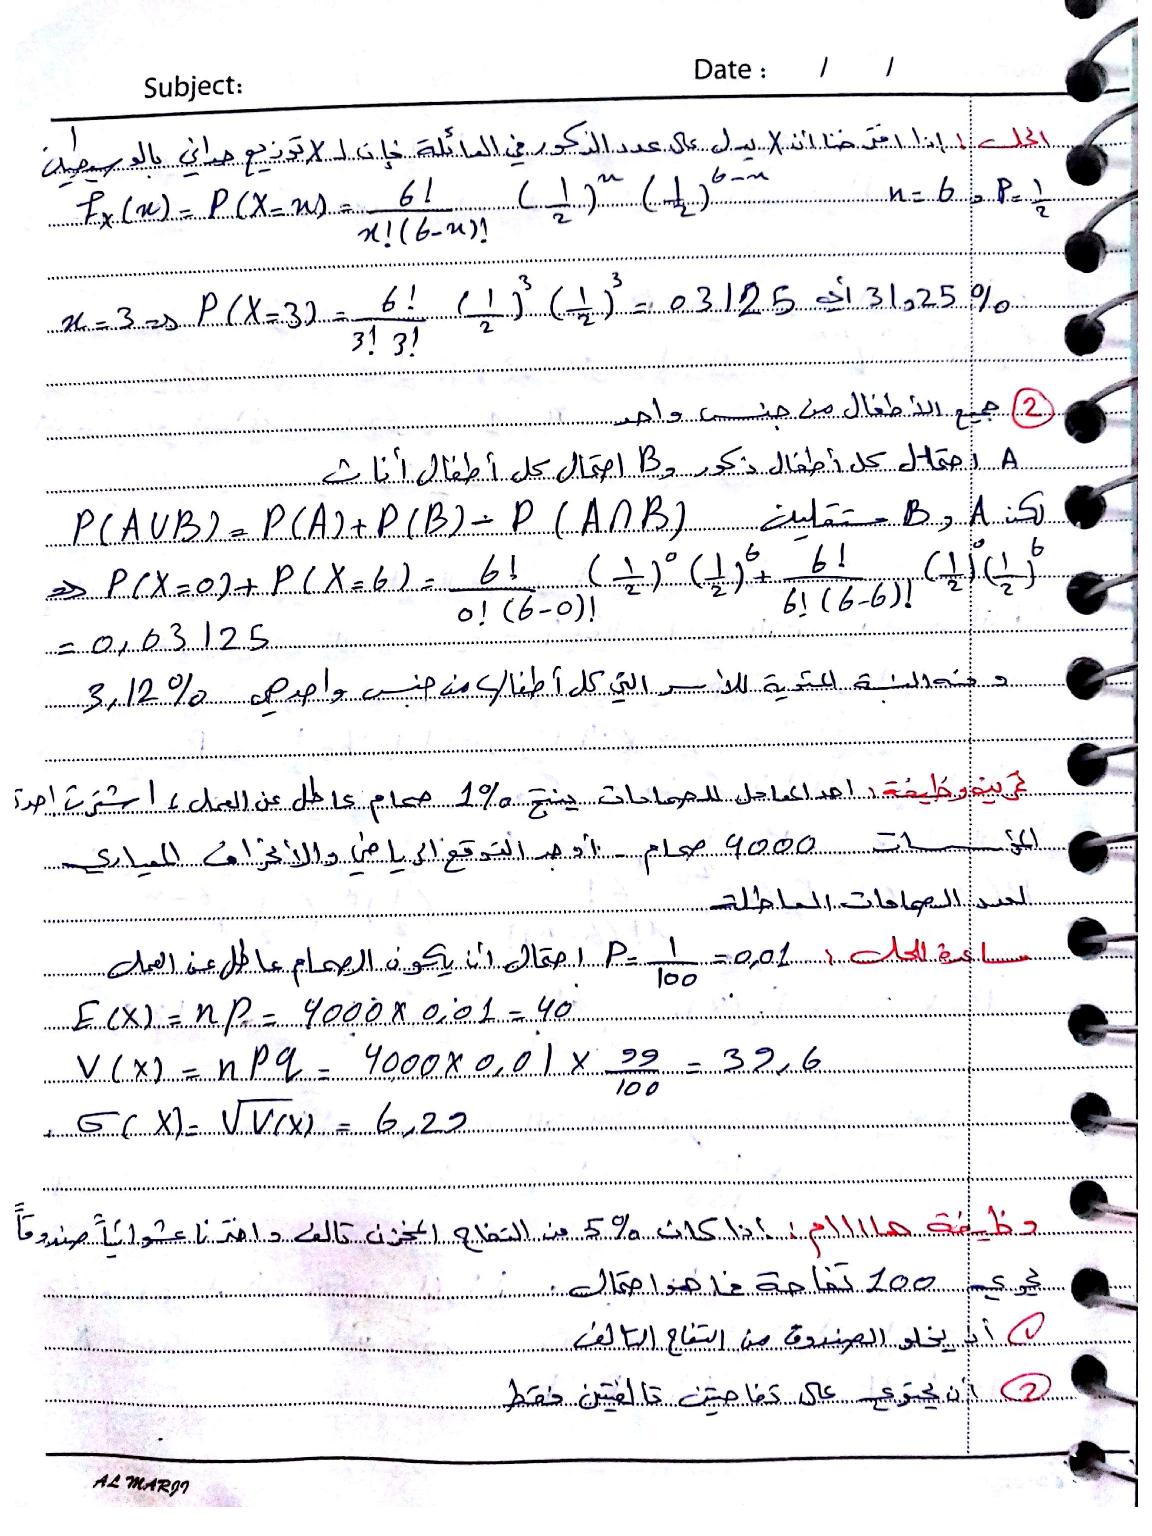 Subject:
Date : / /
الحل : إذا افترضنا ان X يدل على عدد الذكور في العائلة فإن لـ X توزيع حداني بالوسيطين
f_X(x) = P(X=x) = 6! / x!(6-x)! (1/2)^x (1/2)^{6-x} n=6 , P=1/2
x=3 ⇒ P(X=3) = 6! / 3! 3! (1/2)^3 (1/2)^3 = 03125 أي 31,25 %
② جميع الأطفال من جنس واحد
A احتمال كل أطفال ذكور و B احتمال كل أطفال أناث
لكن A و B مستقلين P(A∪B) = P(A)+P(B) - P(A∩B)
⇒ P(X=0) + P(X=6) = 6! / 0!(6-0)! (1/2)^0 (1/2)^6 + 6! / 6!(6-6)! (1/2)^0 (1/2)^6
= 0,03125
ومنه النسبة المئوية للأسر التي كل أطفالها من جنس واحد هي 3,12%
تمرين وظيفة : احد المعامل للصمامات ينتج 1% صمام عاطل عن العمل ، اشترت احدة
المؤسسات 4000 صمام - أوجد التوقع الرياضي والانحراف المعياري
لعدد الصمامات العاطلة
مساعدة للحل : P = 1/100 = 0,01 احتمال أن يكون الصمام عاطل عن العمل
E(X) = n P = 4000 × 0,01 = 40
V(X) = n P q = 4000 × 0,01 × 99/100 = 39,6
σ(X) = √V(X) = 6,29
وظيفة هاااام : اذا كان 5% من التفاح المخزن تالف واخترنا عشوائياً صندوقاً
يحوي 100 تفاحة فما هو احتمال
① أن يخلو الصندوق من التفاح التالف
② أن يحتوي على تفاحتين تالفتين فقط
AL MARJI